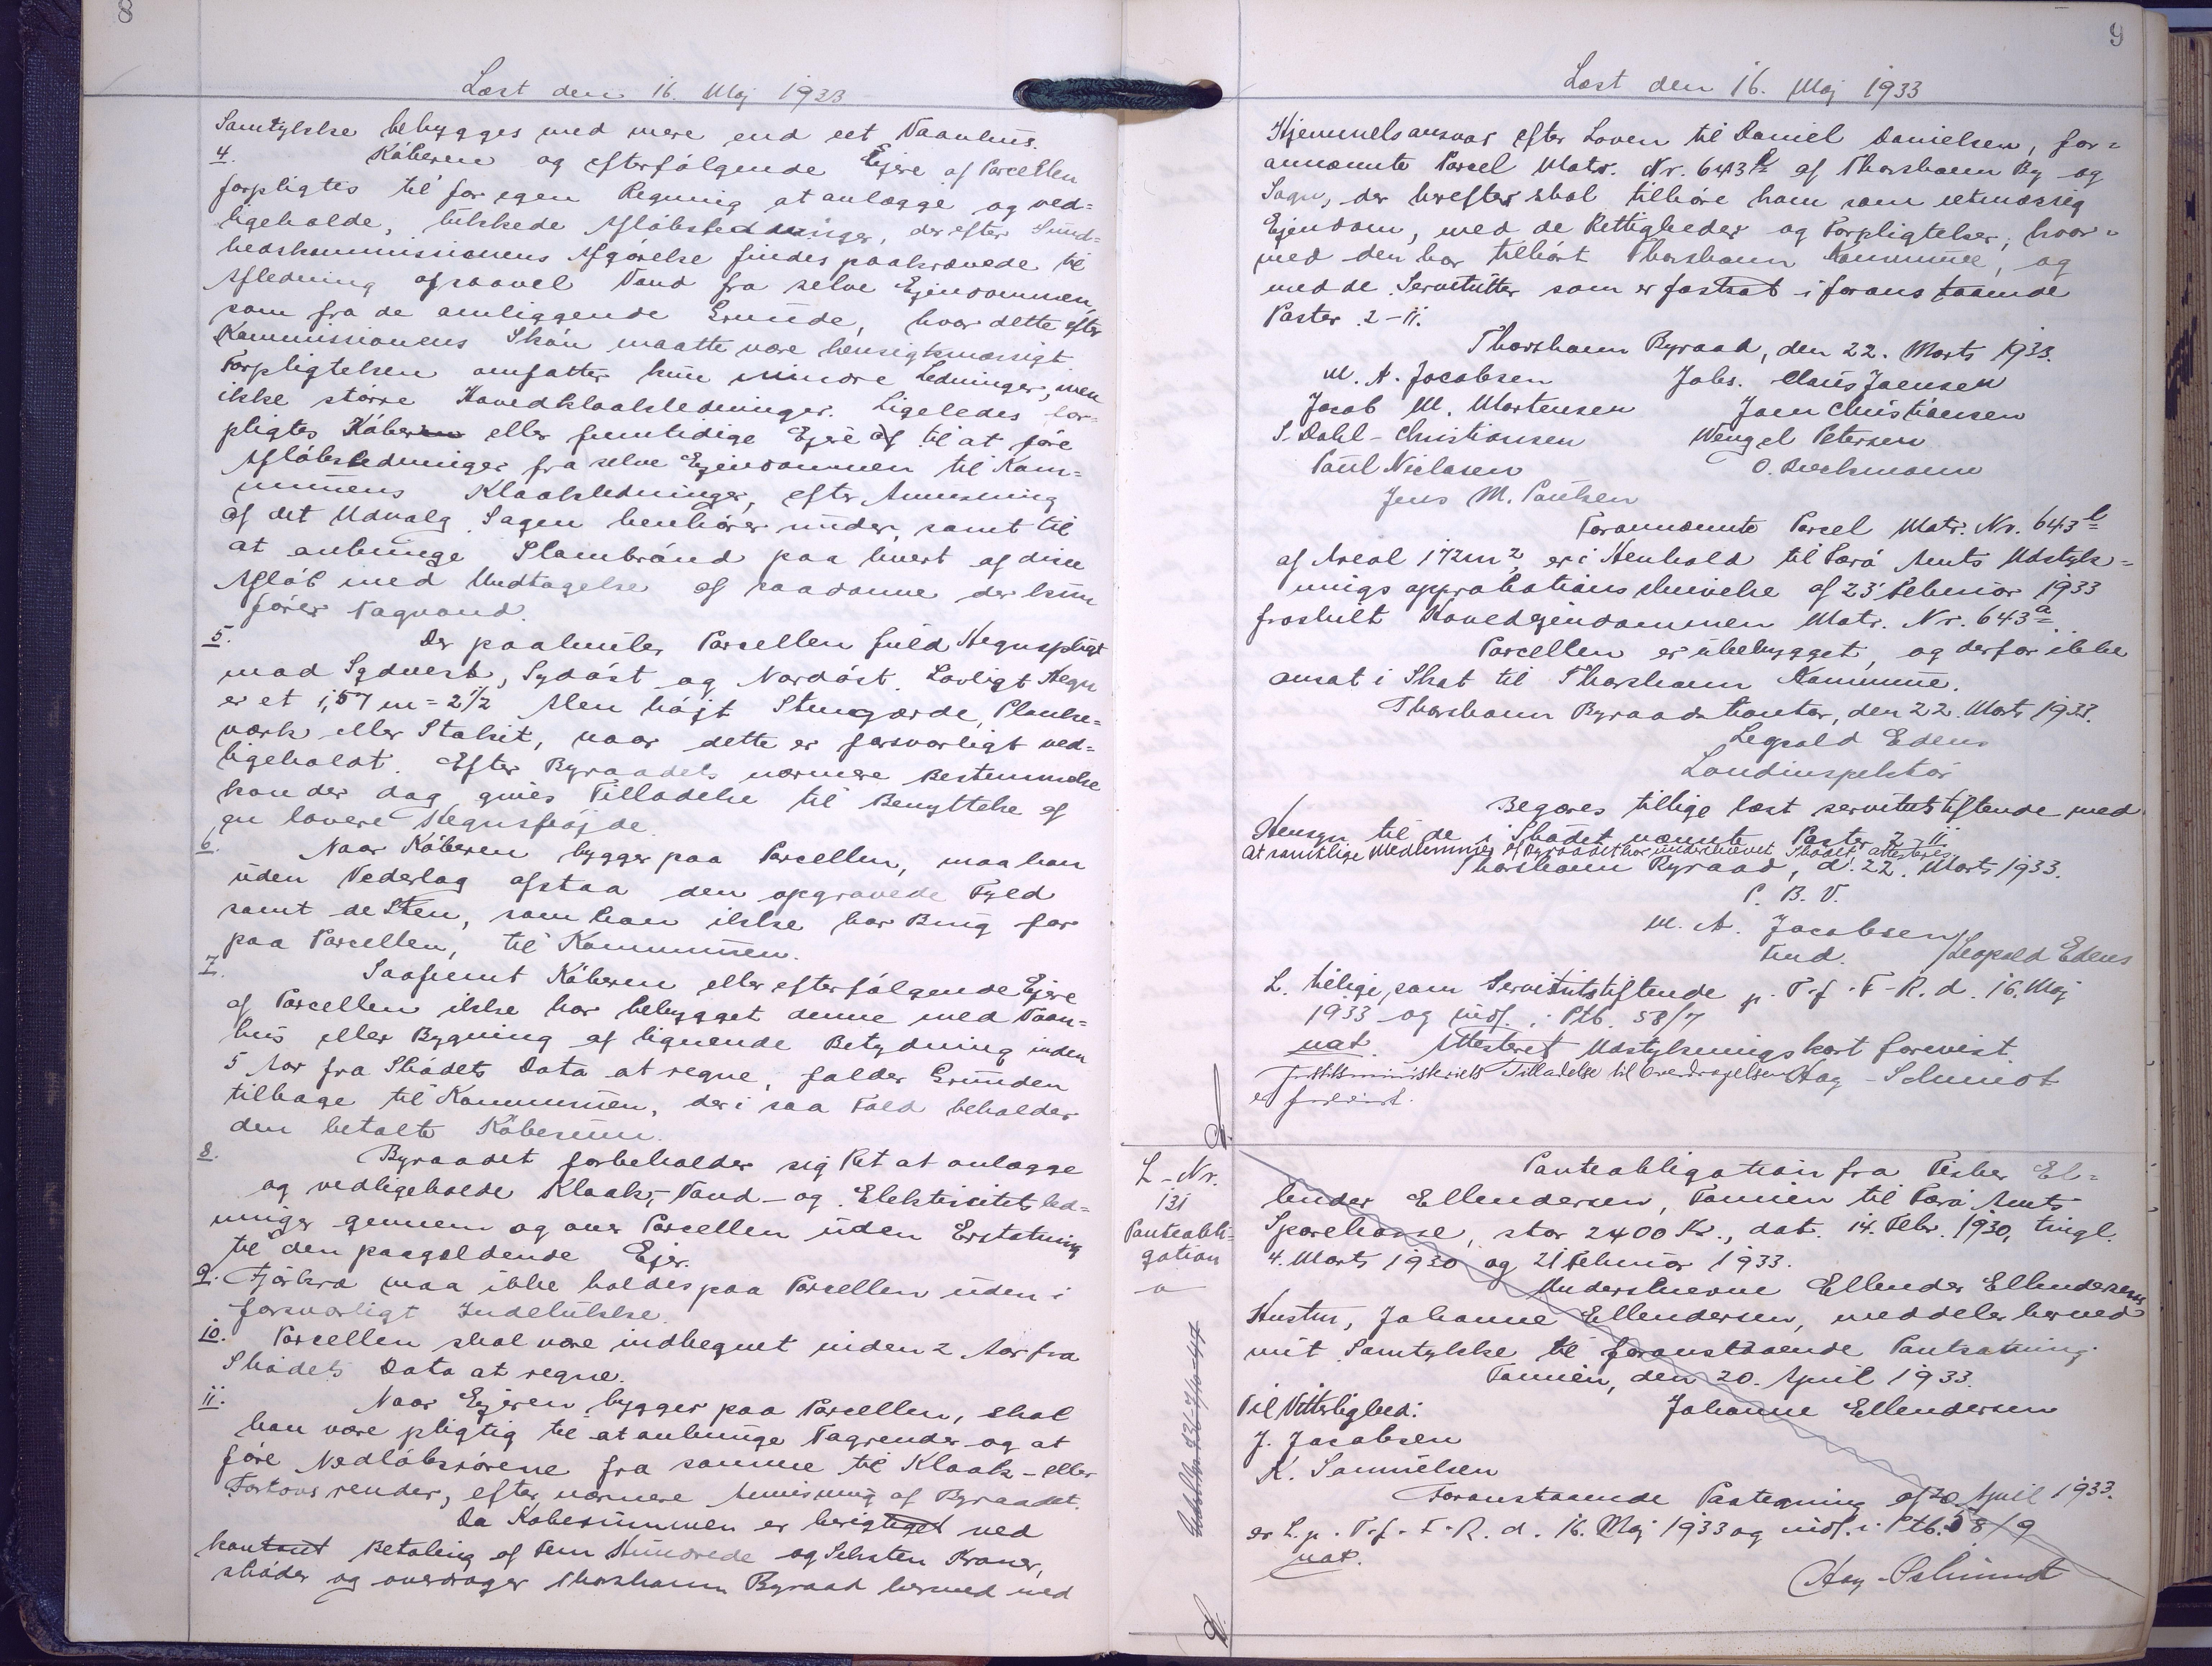 8
Læst den 16. Maj 1933
Samtykke bebygges med mere end eet Vaanhus.
4. Køberen og efterfølgende Ejere af Parcellen
forpligtes til for egen Regning at anlægge og ved=
ligeholde, lukkede Afløbsledninger, der efter Sund=
hedskommissionens Afgørelse findes paakrævede til
Afledning af saavel Vand fra selve Ejendommen,
som fra de omliggende Grunde, hvor dette efter
Kommissionens Skøn maatte være hensigtsmæssigt.
Forpligtelsen omfatter kun mindre Ledninger, men
ikke større Hovedkloakledninger. Ligeledes for-
pligtes Køberen eller fremtidige Ejere af til at føre
Afløbsledninger fra selve Ejendommen til Kom=
munens Kloakledninger, efter Anvisning
af det Udvalg Sagen henhører under, samt til
at anbringe Slambrønd paa hvert af disse
Afløb med Undtagelse af saadanne der kun
fører Tagvand.
5. Der paahviler Parcellen fuld Hegnspligt
mod Sydvest, Sydøst og Nordøst. Lovligt Hegn
er et 1,57 m = 2 1/2 Alen højt Stengærde, Planke=
værk eller Stakit, naar dette er forsvarligt ved=
ligeholdt. Efter Byraadets nærmere Bestemmelse
kan der dog gives Tilladelse til Benyttelse af
en lavere Hegnshøjde.
6. Naar Køberen bygger paa Parcellen, maa han
uden Vederlag afstaa den opgravede Fyld
samt de Sten, som han ikke har Brug for
paa Parcellen, til Kommunen.
7. Saafremt Køberen eller efterfølgende Ejere
af Parcellen ikke har bebygget denne med Vaan=
hus eller Bygning af lignende Betydning inden
5 Aar fra Skødets Dato at regne, falder Grunden
tilbage til Kommunen, der i saa Fald beholder
den betalte Købesum.
8. Byraadet forbeholder sig Ret at anlægge
og vedligeholde Kloak-, Vand- og Elektricitetsled=
ninger gennem og over Parcellen uden Erstatning
til den paagældende Ejer.
9. Fjerkræ maa ikke holdes paa Parcellen uden i
forsvarligt Indelukke.
10. Parcellen skal være indhegnet inden 2 Aar fra
Skødets Dato at regne.
11. Naar Ejeren bygger paa Parcellen, skal
han være pligtig til at anbringe Tagrender og at
føre Nedløbsrørene fra samme til Kloak- eller
Fortovsrender, efter nærmere Anvisning af Byraadet.
Da Købesummen er berigtiget ved
kontant Betaling af Fem Hundrede og Seksten Kroner,
skøder og overdrager Thorshavn Byraad hermed med
9
Læst den 16. Maj 1933
Hjemmelsansvar efter Loven til Daniel Danielsen, for=
annævnte Parcel Matr. Nr. 643 l af Thorshavn By og
Sogn, der herefter skal tilhøre ham som retmæssig
Ejendom, med de Rettigheder og Forpligtelser, hvor=
med den har tilhørt Thorshavn Kommune, og
med de Servitutter som er fastsat i foranstaaende
Poster 2-11.
Thorshavn Byraad, den 22. Marts 1933.
M. A. Jacobsen Johs. Claus Joensen
Jacob M. Mortensen Joen Christiansen
S. Dahl-Christiansen Wenzel Petersen
Paul Niclasen O. Beckmann
Jens M. Poulsen
Forannævnte Parcel Matr. Nr. 643 l
af Areal 172 m2, er i Henhold til Færø Amts Udstyk=
nings approbationsskrivelse af 23. Februar 1933
fraskilt Hovedejendommen Matr. Nr. 643 a.
Parcellen er ubebygget, og derfor ikke
ansat i Skat til Thorshavn Kommune.
Thorshavn Byraads Kontor, den 22. Marts 1933.
Leopold Edens
Landinspektør
Begæres tillige læst servitutstiftende med
Hensyn til de i Skødet nævnte Poster 2-11.
At samtlige Medlemmer af Byraadet har underskrevet Skødet attesteres
Thorshavn Byraad, d. 22. Marts 1933.
P. B. V.
M. A. Jacobsen
Fmd. /Leopold Edens
L. tillige som Servitutstiftende p. T. f. F. R. d. 16. Maj
1933 og indf. i Ptb. 58/7
nat. Attesteret Udstykningskort forevist.
Justitsministeriets Tilladelse til Overdragelsen Hay-Schmidt
er forevist.
L-Nr.
131
Panteobli-
gation
Panteobligation fra Fisker El=
lender Ellendersen, Famien til Færø Amts
Sparekasse, stor 2400 Kr., dat. 14. Febr. 1930, tingl.
4. Marts 1930 og 21 Februar 1933.
Underskrevne Ellender Ellendersens
Hustru, Johanne Ellendersen, meddeler herved
mit Samtykke til foranstaaende Pantsætning.
Famien, den 20. April 1933.
Til Vitterlighed: Johanne Ellendersen
J. Jacobsen
K. Samuelsen
Foranstaaende Paategning af 20. April 1933.
er L. p. T. f. F. R. d. 16. Maj 1933 og indf. i Ptb. 58/9
nat.
Hay-Schmidt